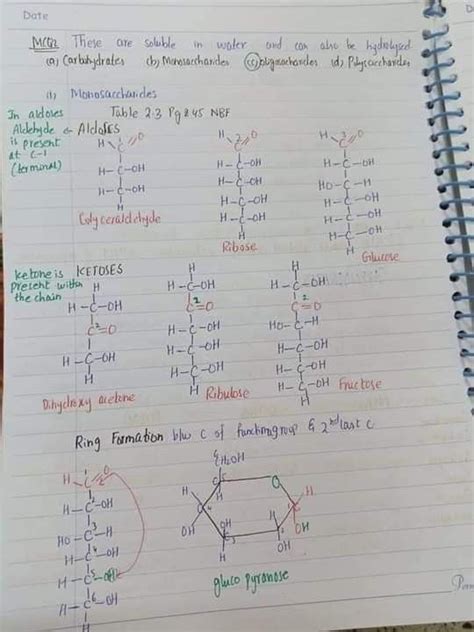 Date
MCQ: These are soluble in water and can also be hydrolysed
(a) Carbohydrates (b) Monosaccharides (c) oligosaccharides (d) Polysaccharides
(1) Monosaccharides
Table 2.3 Pg # 45 NBF
In aldoses
Aldehyde
is present
at C-1
(terminal)
ALDOSES
H C O
H-C-OH
H-C-OH
H
Glyceraldehyde
H C O
H-C-OH
H-C-OH
H-C-OH
H-C-OH
H
Ribose
H C O
H-C-OH
HO-C-H
H-C-OH
H-C-OH
H-C-OH
H
Glucose
ketone is
present within
the chain
KETOSES
H
H-C-OH
C2=O
H-C-OH
H
Dihydroxy acetone
H
H-C-OH
C2=O
H-C-OH
H-C-OH
H-C-OH
H
Ribulose
H
H-C-OH
C2=O
HO-C-H
H-C-OH
H-C-OH
H-C-OH
H
Fructose
Ring Formation b/w C of function group & 2nd last C
H-C=O
H-C2-OH
HO-C3-H
H-C4-OH
H-C5-OH
H-C6-OH
H
CH2OH
H C5 O H
C4 C1
OH OH H OH
C3 C2
H OH
gluco pyranose